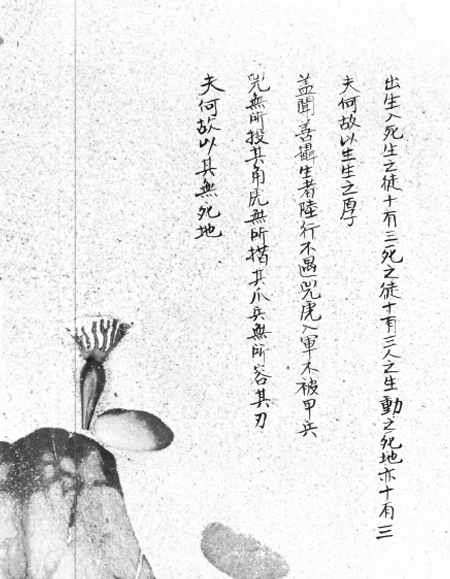 出生入死生之徒十有三死之徒十有三人之生動之死地亦十有三
夫何故以生生之厚
盖聞善攝生者陸行不遇兕虎入軍不被甲兵
兕無所投其角虎無所措其爪兵無所容其刃
夫何故以其無死地